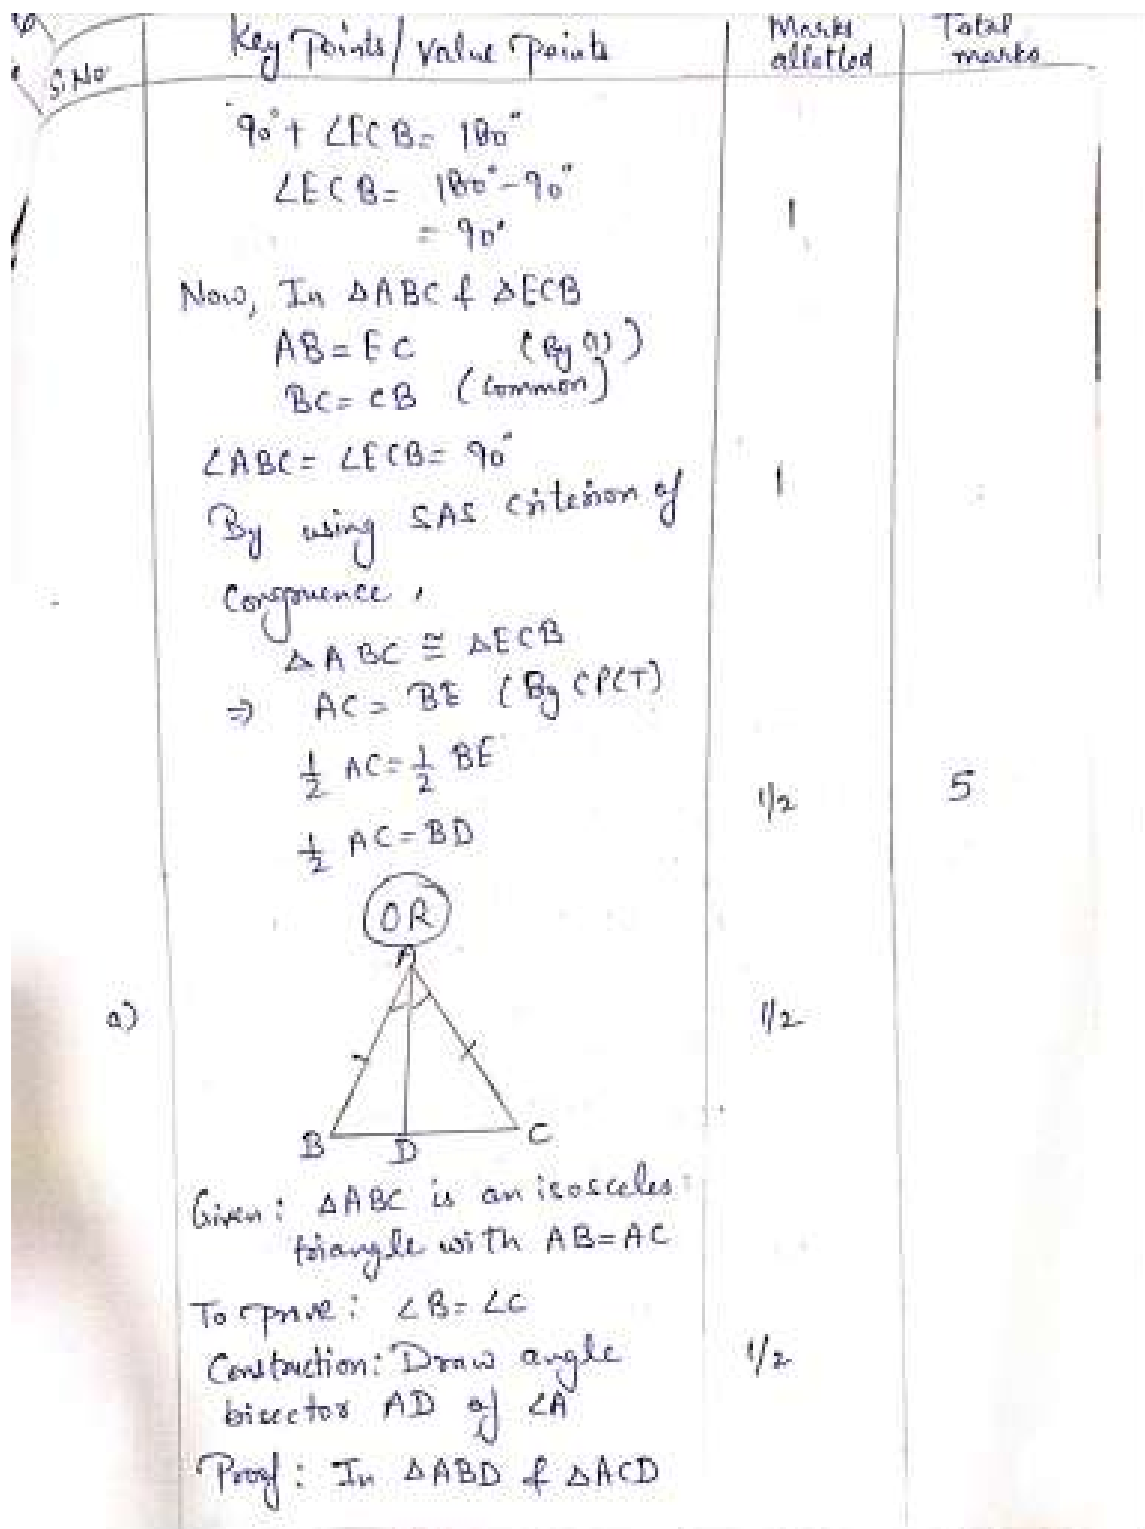 S.No
Key Points/ Value Points
Marks allotted
Total marks
90° + ∠ECB = 180°
∠ECB = 180° - 90°
= 90°
1
Now, In ΔABC & ΔECB
AB = EC (By (1))
BC = CB (Common)
∠ABC = ∠ECB = 90°
By using SAS Criterion of
1
Congruence,
ΔABC ≅ ΔECB
⇒ AC = BE (By CPCT)
1/2 AC = 1/2 BE
1/2
5
1/2 AC = BD
OR
A
a)
1/2
B
D
C
Given: ΔABC is an isosceles
triangle with AB = AC
To prove: ∠B = ∠C
Construction: Draw angle
1/2
bisector AD of ∠A
Proof: In ΔABD & ΔACD